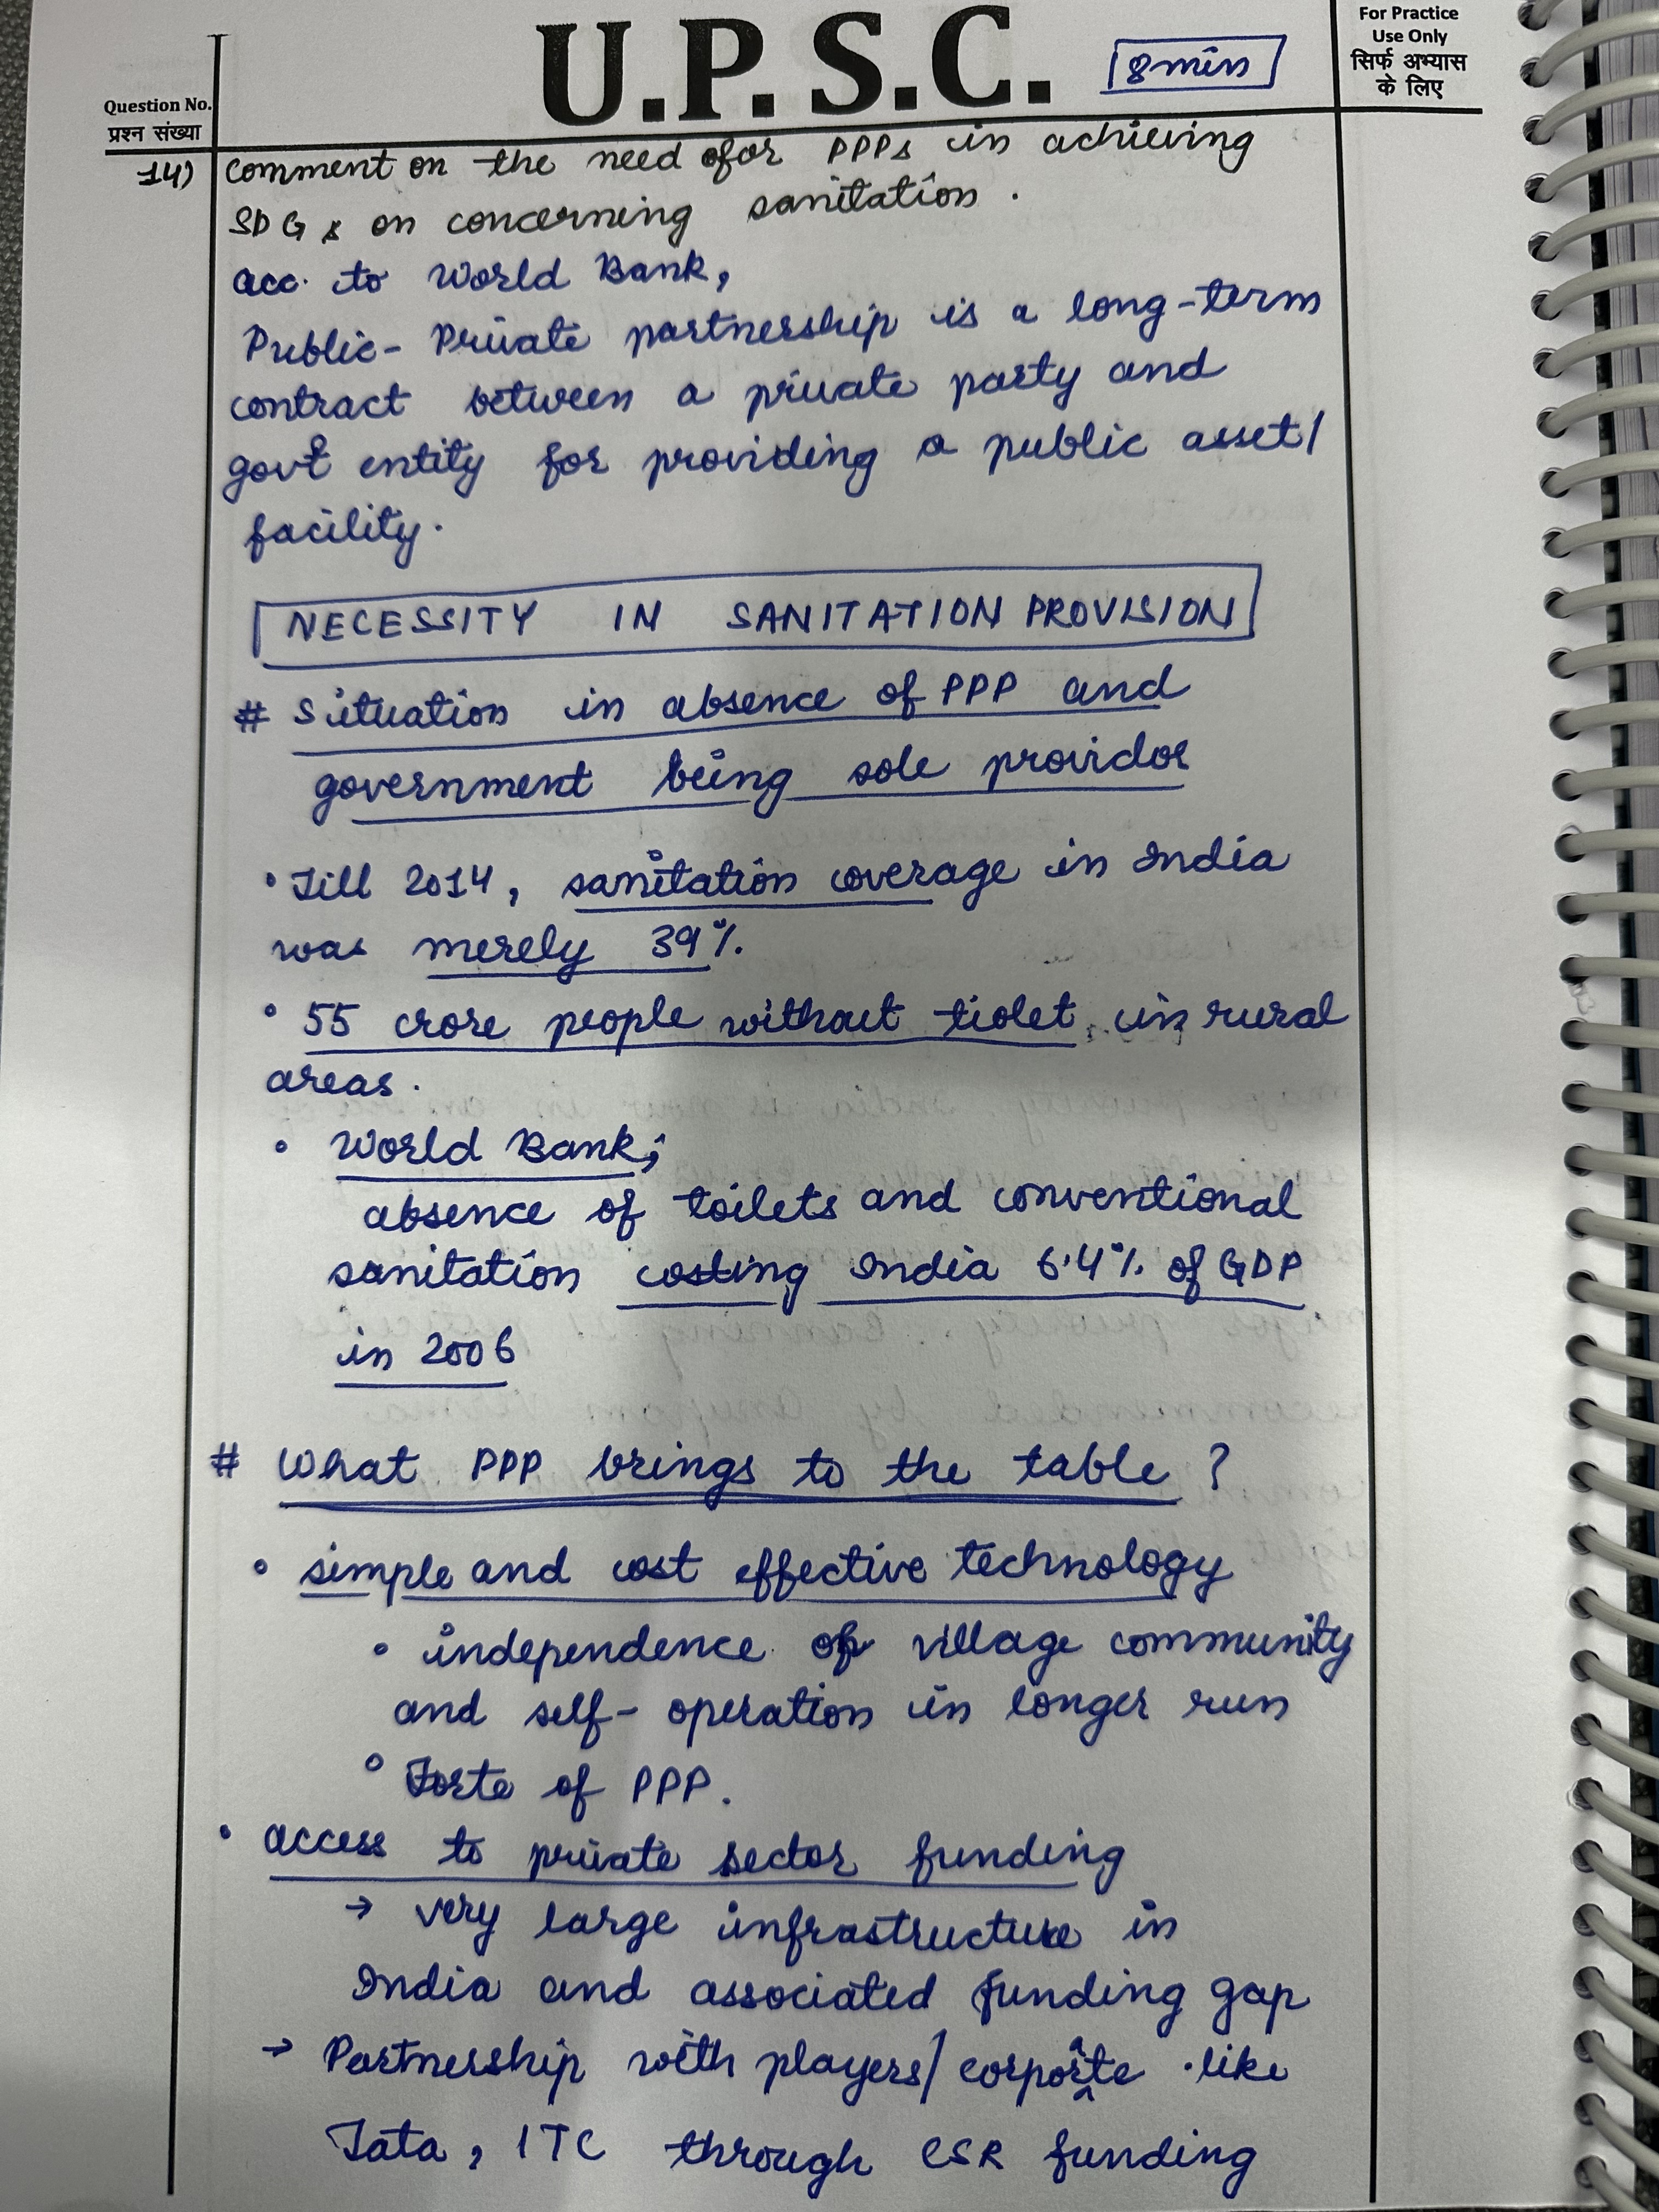 U.P.S.C.
8 min
For Practice
Use Only
सिर्फ अभ्यास
के लिए
Question No.
प्रश्न संख्या
14) Comment on the need for PPPs in achieving
SDGs on concerning sanitation.
acc. to World Bank,
Public-Private partnership is a long-term
contract between a private party and
govt entity for providing a public asset/
facility.
NECESSITY IN SANITATION PROVISION
# Situation in absence of PPP and
government being sole providor
• Till 2014, sanitation coverage in India
was merely 39%.
• 55 crore people without tiolet in rural
areas.
• World Bank;
absence of toilets and conventional
sanitation costing India 6.4% of GDP
in 2006
# What PPP brings to the table?
• simple and cost effective technology
• independence of village community
and self-operation in longer run
• Forte of PPP.
• access to private sector funding
→ very large infrastructure in
India and associated funding gap
→ Partnership with players/corporate like
Tata, ITC through CSR funding